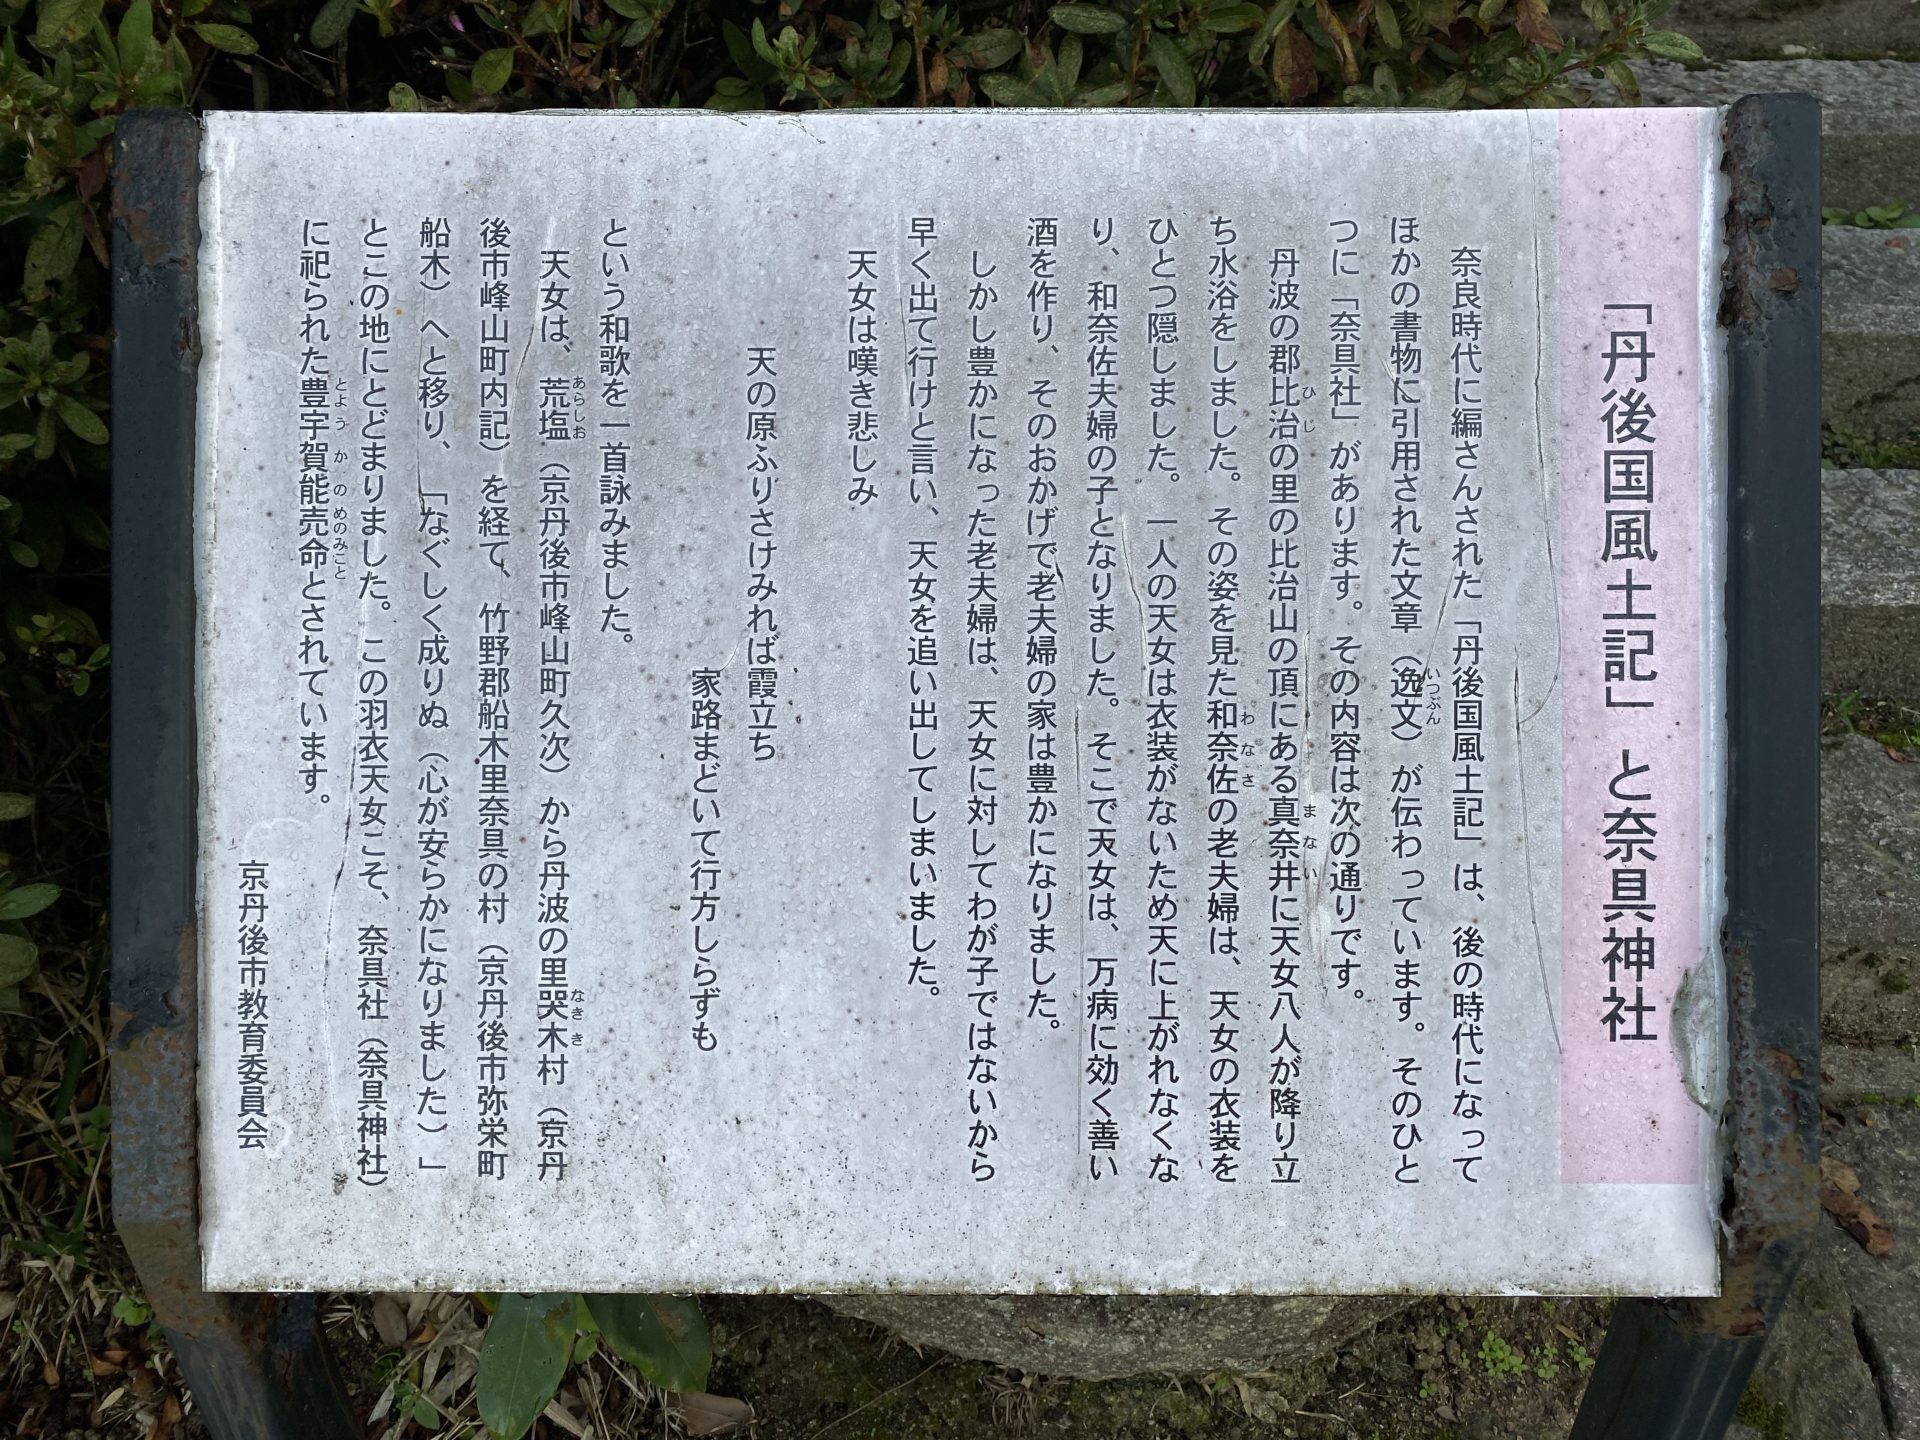 「丹後国風土記」と奈具神社
奈良時代に編さんされた「丹後国風土記」は、後の時代になって
ほかの書物に引用された文章（逸文）が伝わっています。そのひと
つに「奈具社」があります。その内容は次の通りです。
丹波の郡比治の里の比治山の頂にある真奈井に天女八人が降り立
ち水浴をしました。その姿を見た和奈佐の老夫婦は、天女の衣装を
ひとつ隠しました。一人の天女は衣装がないため天に上がれなくな
り、和奈佐夫婦の子となりました。そこで天女は、万病に効く善い
酒を作り、そのおかげで老夫婦の家は豊かになりました。
しかし豊かになった老夫婦は、天女に対してわが子ではないから
早く出て行けと言い、天女を追い出してしまいました。
天女は嘆き悲しみ
天の原ふりさけみれば霞立ち
家路まどいて行方しらずも
という和歌を一首詠みました。
天女は、荒塩（京丹後市峰山町久次）から丹波の里哭木村（京丹
後市峰山町内記）を経て、竹野郡船木里奈具の村（京丹後市弥栄町
船木）へと移り、「なぐしく成りぬ（心が安らかになりました）」
とこの地にとどまりました。この羽衣天女こそ、奈具社（奈具神社）
に祀られた豊宇賀能売命とされています。
京丹後市教育委員会